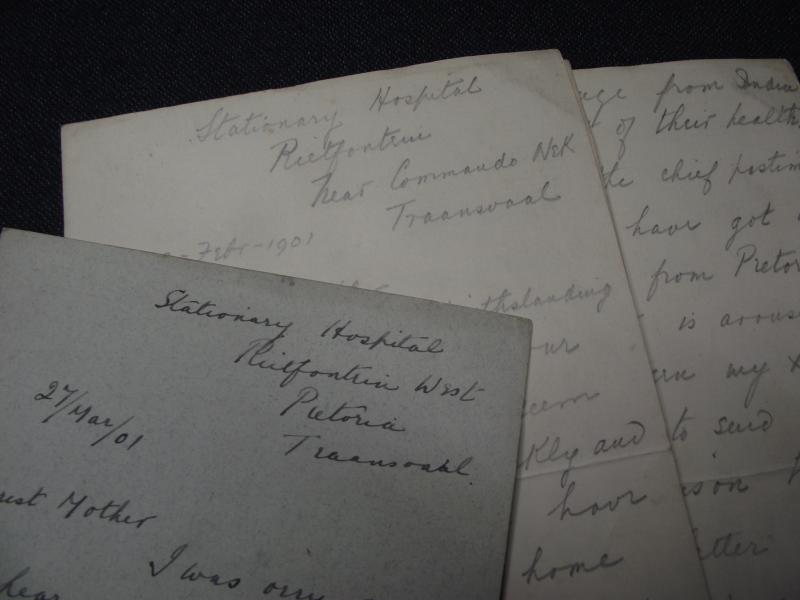 Stationary Hospital
Rietfontein
near Commando Nek
Traansvaal
Febr-1901
withstanding
our
seem
kly and
have
home
age from India
of their health
the chief postm
have got
from Pretor
is arous
my X
to send
ison
etter
Stationary Hospital
Rietfontein West
Pretoria
Traansvaal.
27/Mar/01
rest Mother
I was
hear